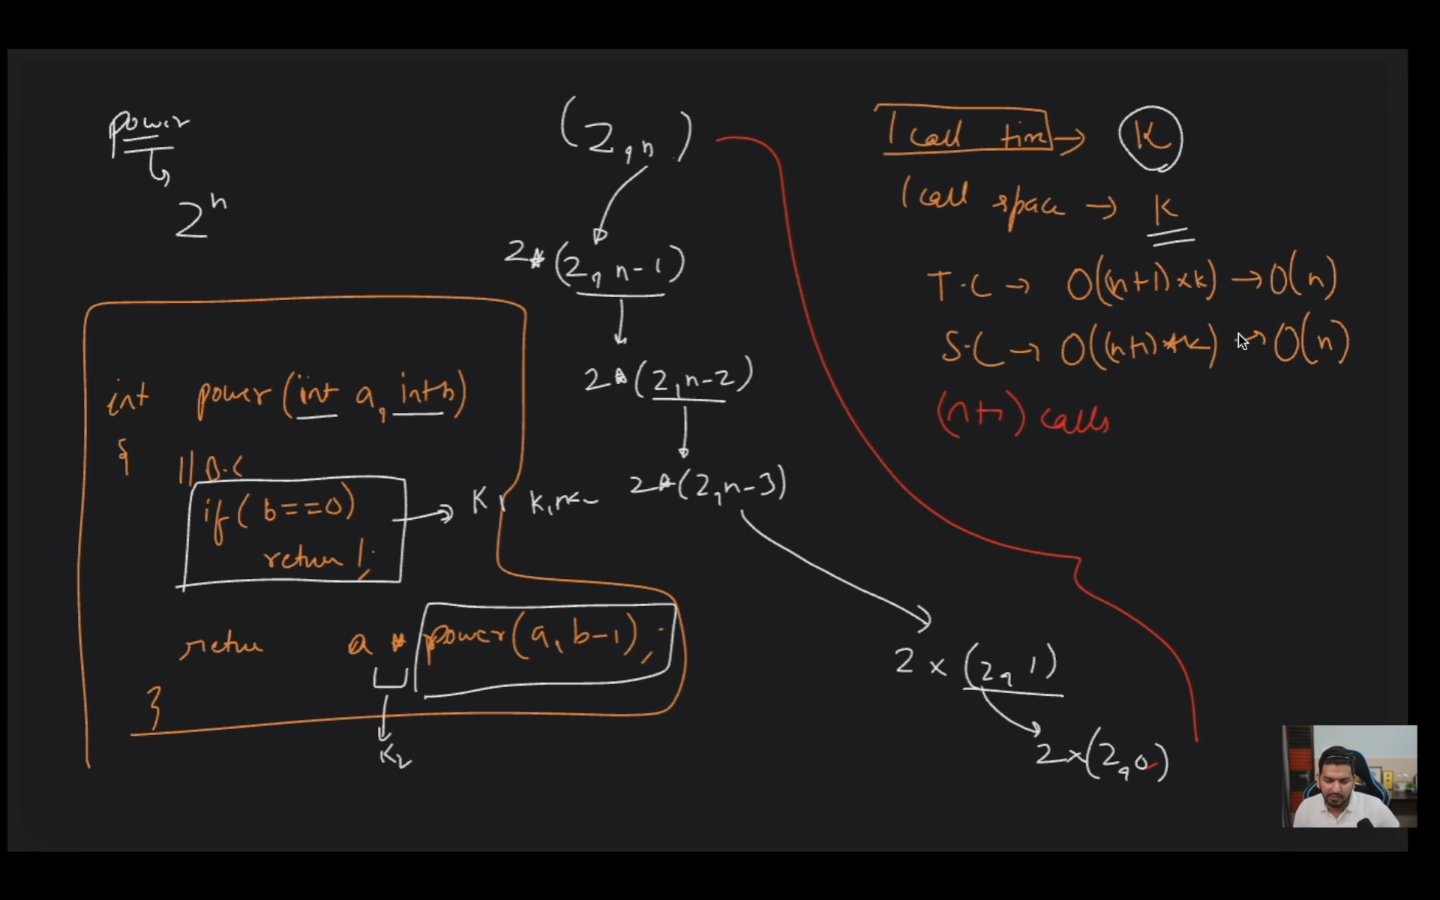 power
2ⁿ
int power (int a, int b)
{
// B.C
if ( b==0)
return 1;
retun a * power(a, b-1);
}
K2
(2, n)
2*(2, n-1)
2*(2, n-2)
2*(2, n-3)
2 x (2, 1)
2x(2, 0)
1 call time → K
1 call space → K
T.C → O((n+1)*k) → O(n)
S.C → O((n+1)*k) → O(n)
(n+1) calls